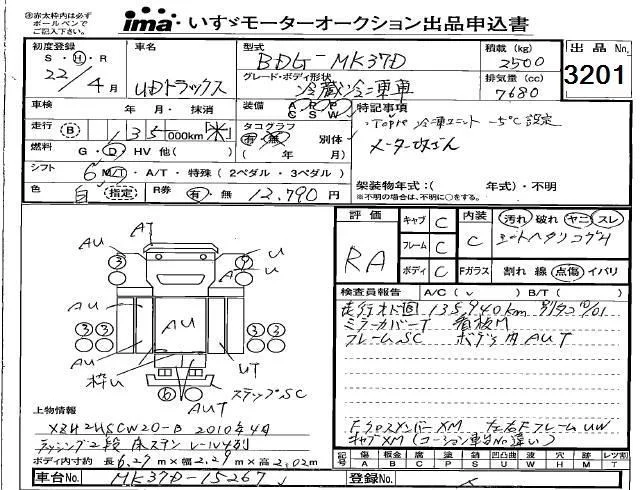 ※赤太枠内は必ず
ボールペンで
ご記入下さい。
ima いすゞモーターオークション出品申込書
初度登録
S・H・R
22/4月
車名
UDトラックス
型式
BDG-MK37D
グレード・ボディ形状
冷蔵冷凍車
積載(kg)
2500
排気量(cc)
7680
出品No.
3201
車検
年 月・抹消
装備
A P P
C S W
特記事項
冷凍ユニット -5℃設定
メーター改ざん
走行 B 135 000km 米
タコグラフ
有・無 別体
( 年 月)
燃料
G・D・HV 他( )
シフト
6 M/T・A/T・特殊(2ペダル・3ペダル)
色 白 指定
R券 有・無 12,790円
架装物年式:( 年式)・不明
※不明の場合は、不明に○をする。
評価
RA
キャブ C
フレーム C
ボディ C
内装 C
汚れ 破れ ヤニ スレ
シートヘタリコゲ4
Fガラス 割れ 線 点傷 イパリ
検査員報告 A/C(v ) B/T( )
走行メド回 135,940km 10/01
ミラーカバーT 看板M
フレームSC ボデー内AUT
FクロスメンバーXM 左右FフレームUW
キャブXM(コーション車台No違い)
AT
AU
U
3
AU
U
AU
AU
3 3
枠U
UT
6
ステップSC
AUT
上物情報
2010年4月
ラッシング2段 床ステン レール4列
ボディ内寸約 長6.27m×幅2.29m×高2.02m
記号
傷 板金 鈑 パネル サビ 塗装 凹凸曲 波 穴 補修跡 交換済 要交換 欠品 レツ割
A B C P S U W H M X T
車台No. MK37D-15267
登録No.